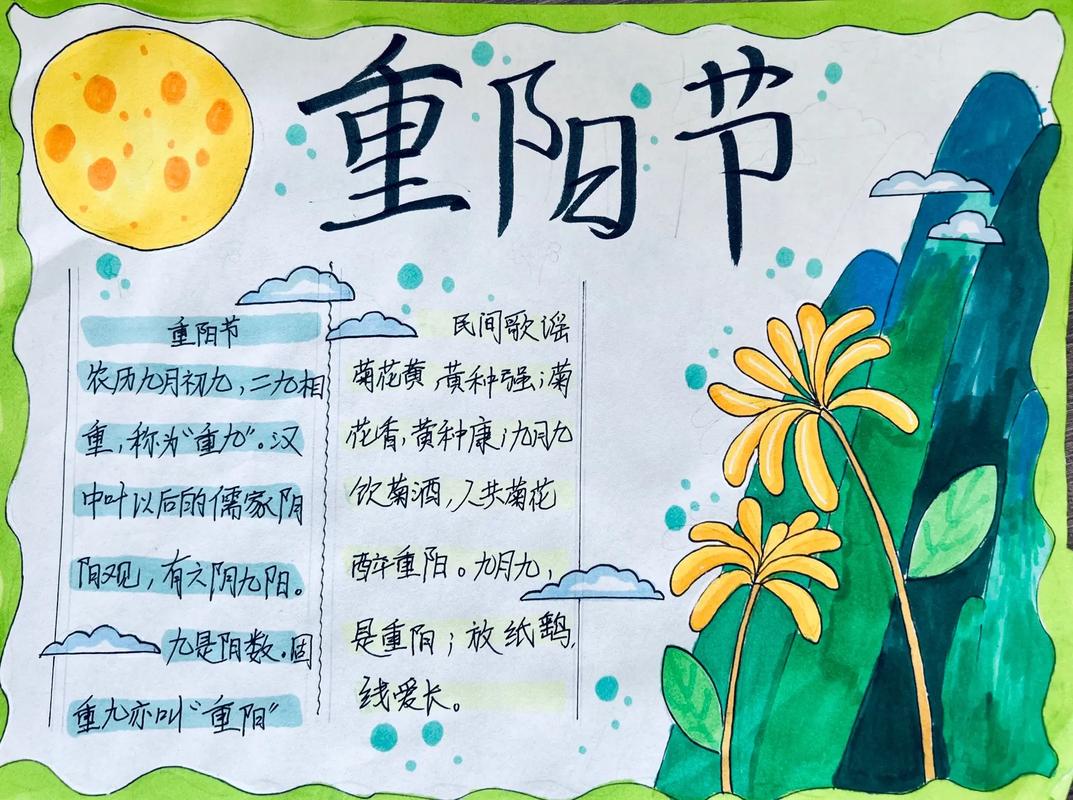 重阳节
重阳节
农历九月初九，二九相
重，称为“重九”。汉
中叶以后的儒家阴
阳观，有六阴九阳。
九是阳数，固
重九亦叫“重阳”
民间歌谣
菊花黄，黄种强；菊
花香，黄种康；九月九
饮菊酒，人共菊花
醉重阳。九月九，
是重阳；放纸鹞，
线爱长。